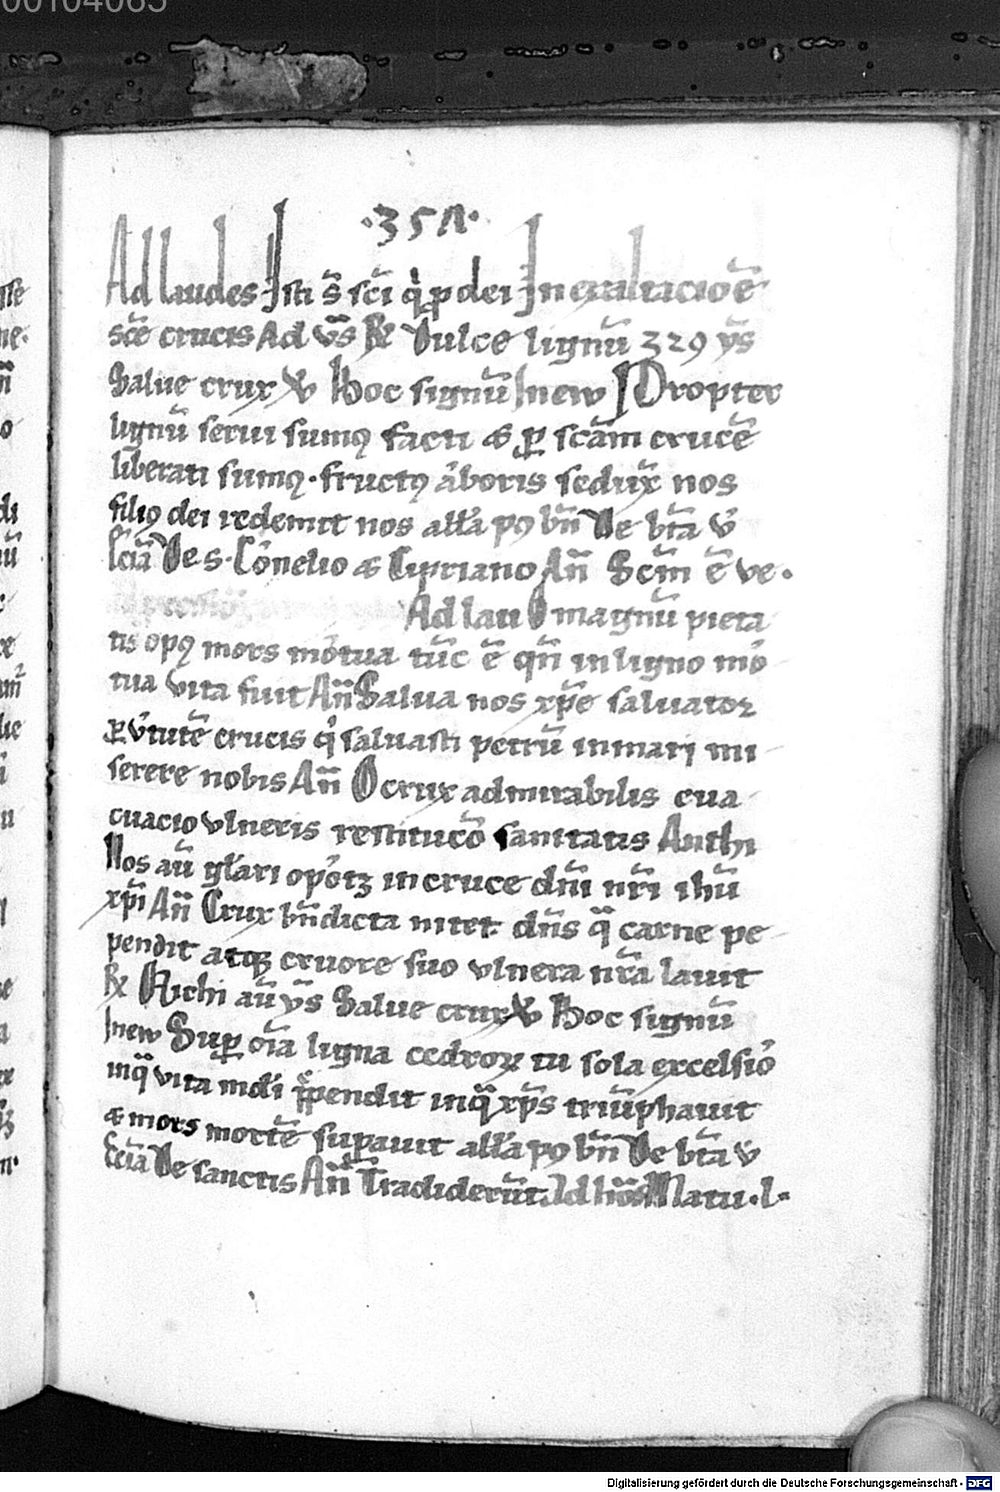 00104065
·35Λ·
Ad laudes Isti s̄ sc̄i q̇ ꝓ dei In exaltacioē
sc̄e crucis Ad v̄s ℟ Dulce lignū 329 ys̄
Salue crux ℣ Hoc signū Inew Propter
lignū serui sumꝰ facti & ꝑ scām crucē
liberati sumꝰ · fructꝰ a̓boris sedux̄ nos
filiꝰ dei redemit nos all̓a pꝰ bn̄ De bt̄a v̓
De s · Co̓nelio & Cipriano An̄ Scm̄ ē ve ·
Ad lau O magnū pieta
tis opꝰ mors mo̓tua tūc ē qn̄ in ligno mo̓
tua vita fuit An̄ Salua nos xp̄e saluator
ꝑ v̓tutē crucis q̇ saluasti petrū in mari mi
serere nobis An̄ O crux admirabilis eua
cuacio vlneris restitucō sanitatis Anthi
Nos aū gl̓ari opo̓tꝫ in cruce dn̄i nr̄i ihū
xp̄i An̄ Crux bn̄dicta nitet dn̄s q̄ carne pe
pendit atqꝫ cruore suo vlnera nr̄a lauit
℟ aū ys̄ Salue crux ℣ Hoc signū
Inew Suꝑ oīa ligna cedroꝝ tu sola excelsio̓
inq̄ vita mdi pendit inq̄ xp̄s triūphauit
& mors mortē suꝑauit all̓a pꝰ bn̄ De bt̄a v̓
De sanctis An̄ Tradiderūt Ad ho̅s Matu · l ·
Digitalisierung gefördert durch die Deutsche Forschungsgemeinschaft - DFG